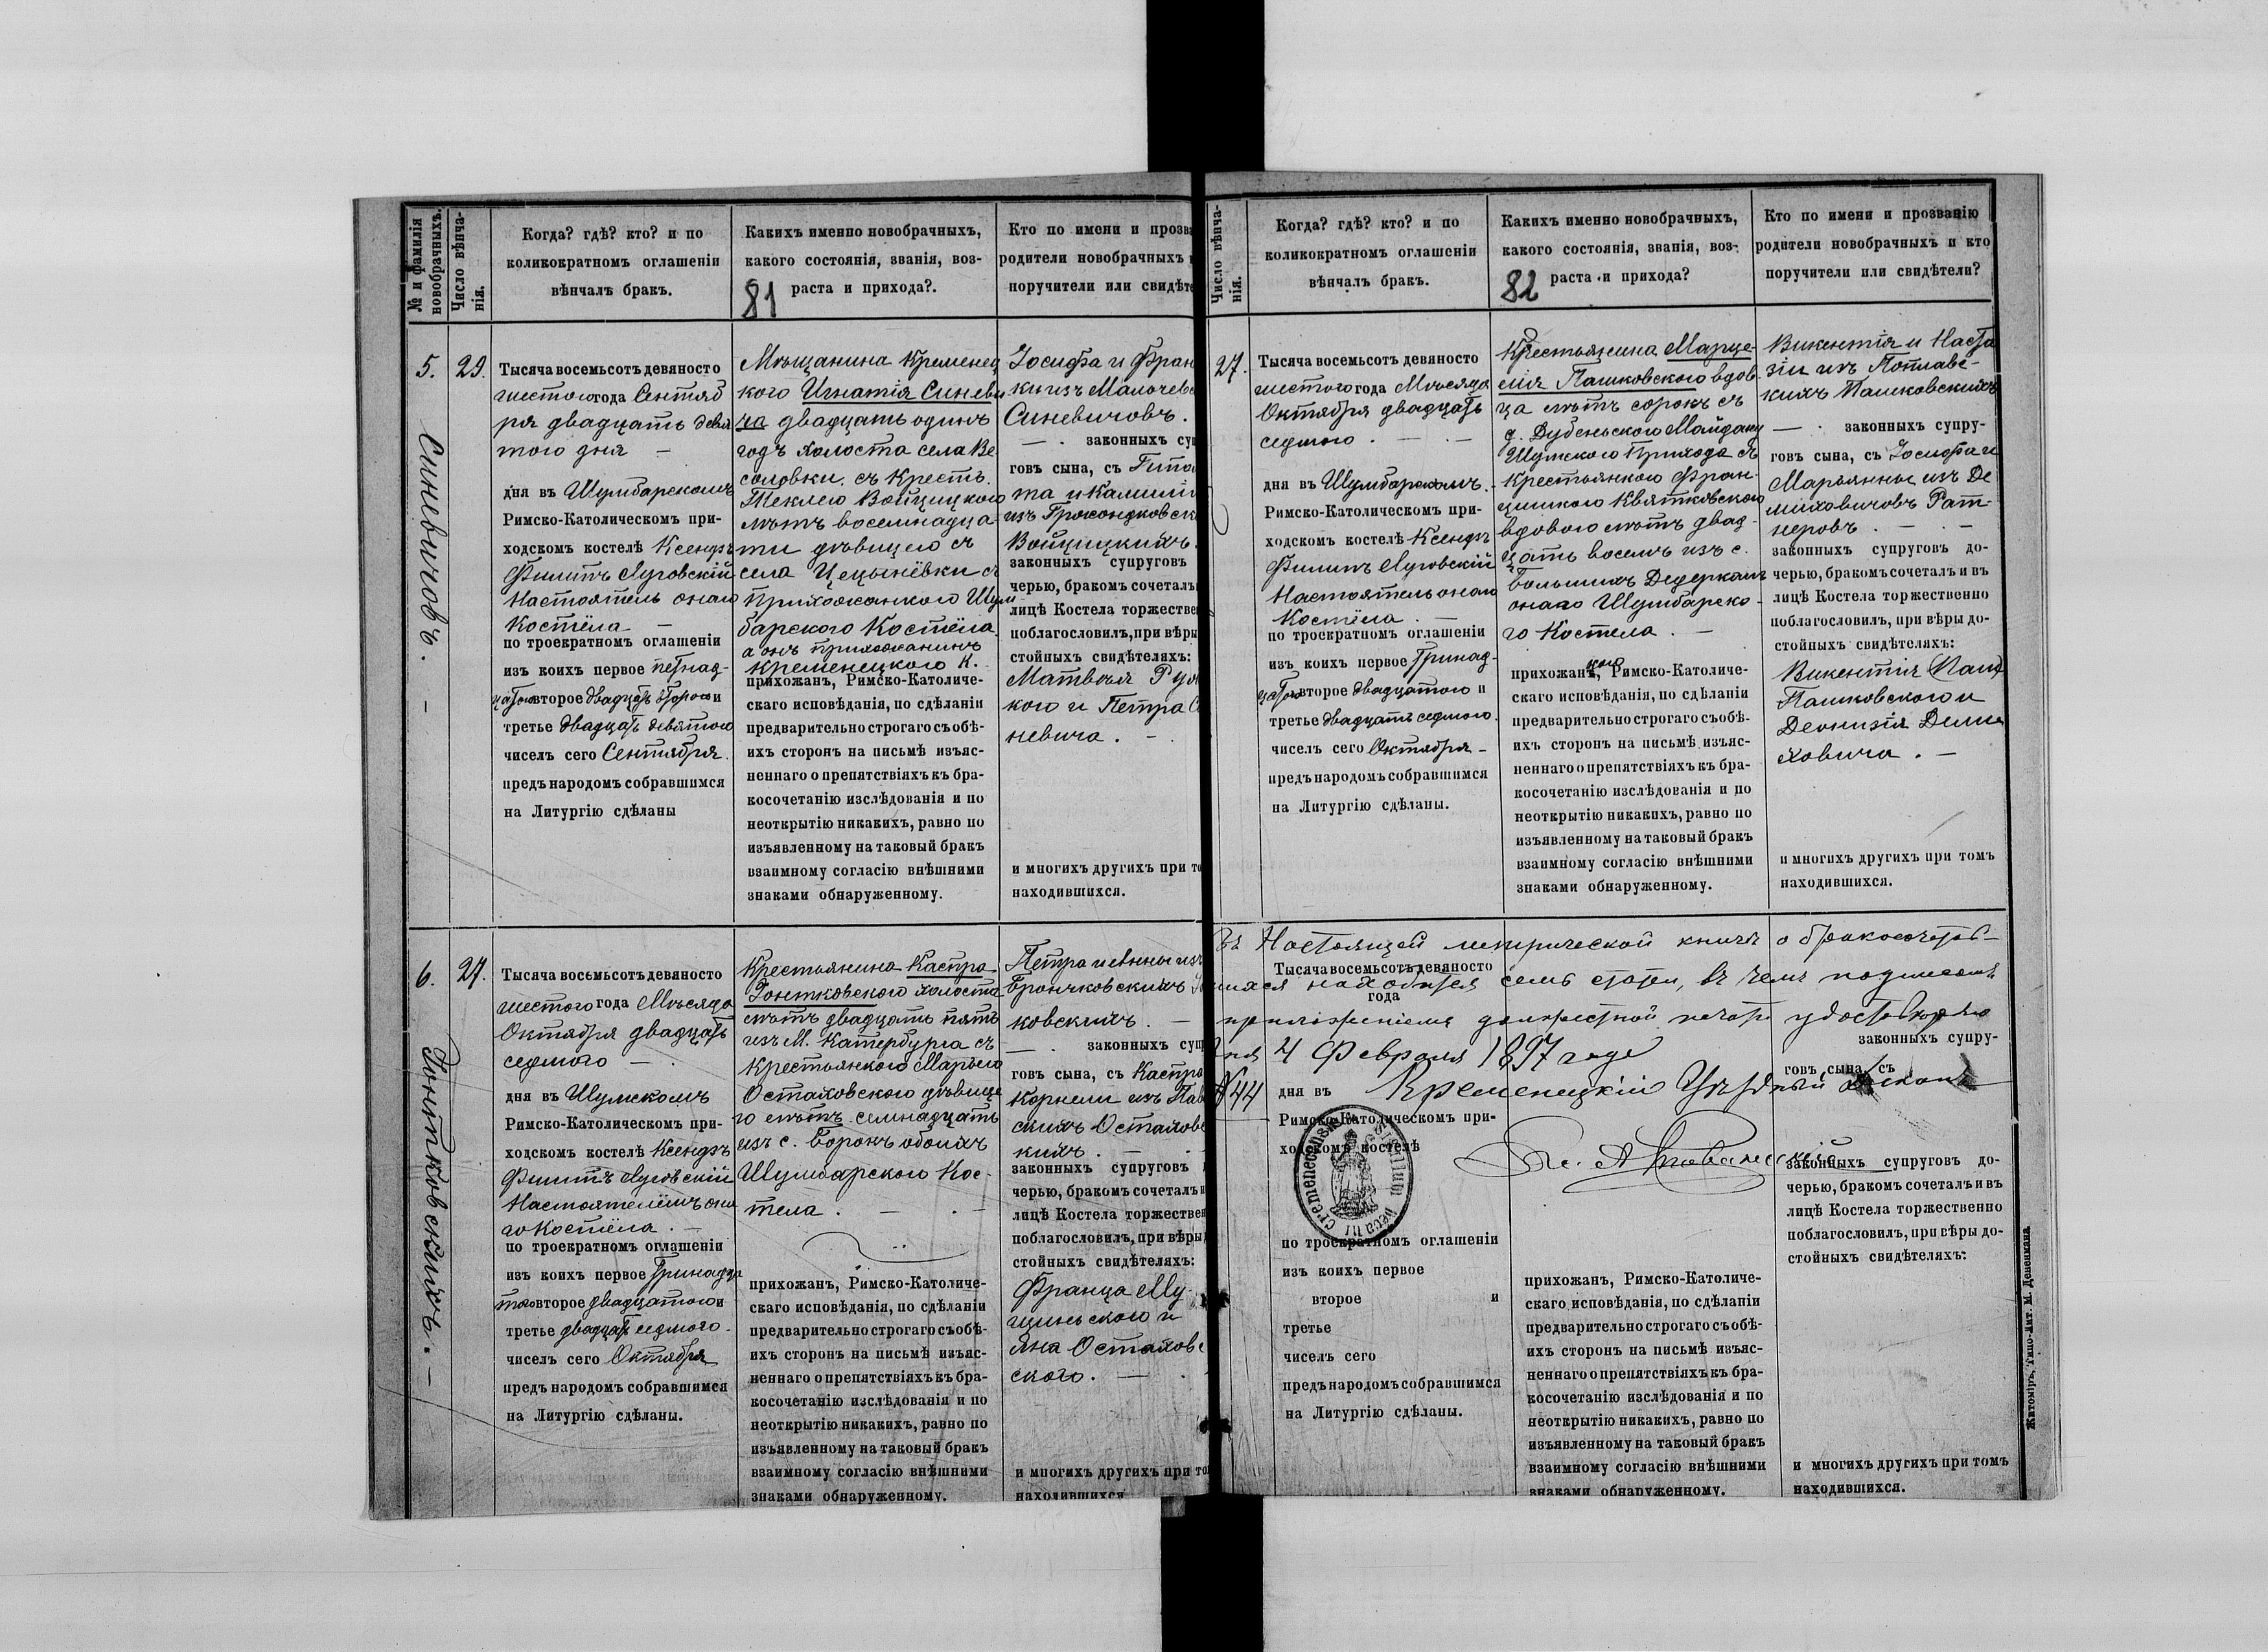 № и фамилія
новобрачныхъ.
Число вѣнча-
нія.
Когда? гдѣ? кто? и по
коликократномъ оглашеніи
вѣнчалъ бракъ.
Какихъ именно новобрачныхъ,
какого состоянія, званія, воз-
81 раста и прихода?.
Кто по имени и прозва
родители новобрачныхъ
поручители или свидѣте
5.
Синевичовъ. —
29.
Тысяча восемьсотъ девяносто
шестого года Сентяб
ря двадцать девя
того дня —
дня въ Шумбарскомъ
Римско-Католическомъ при-
ходскомъ костелѣ Ксендзъ
Филипъ Луговскій
Настоятель онаго
Костёла —
по троекратномъ оглашеніи
изъ коихъ первое пятнад-
цатого второе двадцать второго и
третье двадцать девятого
чиселъ сего Сентября
предъ народомъ собравшимся
на Литургію сдѣланы
Мѣщанина Кременец
кого Игнатія Синеви
ча двадцать одинъ
годъ холоста села Ве
соловки. съ Крестъ.
Теклею Войцицкого
лѣтъ восемнадца
ти дѣвицею съ
села Цецынёвки съ
прихожанкого Шум
барского Костёла
а онъ прихожанинъ
Кременецкого К.
прихожан, Римско-Католиче-
скаго исповѣданія, по сдѣланіи
предварительно строгаго съ обѣ-
ихъ сторонъ на письмѣ изъяс-
неннаго о препятствіяхъ къ бра-
косочетанію изслѣдованія и по
неоткрытію никакихъ, равно по
изъявленному на таковый бракъ
взаимному согласію внѣшними
знаками обнаруженному.
Іосифа и Фран
ки изъ Малочевс
Синевичовъ.
— . законныхъ суп
говъ сына, съ Гипо
та и Камилі
изъ Грохондковск
Войцицкихъ.
законныхъ супруговъ
черью, бракомъ сочеталъ
лицѣ Костела торжестве
поблагословилъ, при вѣры
стойныхъ свидѣтеляхъ:
Матвѣя Ру
кого и Петра С
невича. —
и многихъ другихъ при то
находившихся.
6.
Гонтковскихъ. —
27.
Тысяча восемьсотъ девяносто
шестого года Мѣсяца
Октября двадцать
седмого —
дня въ Шумскомъ
Римско-Католическомъ при-
ходскомъ костелѣ Ксендзъ
Филипъ Луговскій
Настоятелемъ она
го Костёла. —
по троекратномъ оглашеніи
изъ коихъ первое Тринадца
того второе двадцатого и
третье двадцать седмого
чиселъ сего Октября
предъ народомъ собравшимся
на Литургію сдѣланы.
Крестьянина Каспра
Гонтковского холоста
лѣтъ двадцать пять
изъ М. Катербурга съ
Крестьянкого Марыего
Остаховского дѣвице
го лѣтъ семнадцать
изъ с. Боронъ обоихъ
Шумбарского Кос-
тела. —
прихожан, Римско-Католиче-
скаго исповѣданія, по сдѣланіи
предварительно строгаго съ обѣ-
ихъ сторонъ на письмѣ изъяс-
неннаго о препятствіяхъ къ бра-
косочетанію изслѣдованія и по
неоткрытію никакихъ, равно по
изъявленному на таковый бракъ
взаимному согласію внѣшними
знаками обнаруженному.
Петра и Анны изъ
Брончковскихъ
ковскихъ. —
— . законныхъ суп
говъ сына, съ Каспра
Корнели изъ Пав
скихъ Остахов
кихъ. —
законныхъ супруговъ
черью, бракомъ сочеталъ и
лицѣ Костела торжествен
поблагословилъ, при вѣры
стойныхъ свидѣтеляхъ:
Франца Му-
щиньского и
Яна Остахов
ского. —
и многихъ другихъ при то
находившихся
Число вѣнча-
нія.
Когда? гдѣ? кто? и по
коликократномъ оглашеніи
вѣнчалъ бракъ.
Какихъ именно новобрачныхъ,
какого состоянія, званія, воз-
82 раста и прихода?
Кто по имени и прозванію
родители новобрачныхъ и кто
поручители или свидѣтели?
27.
Тысяча восемьсотъ девяносто
шестого года Мѣсяца
Октября двадцать
седмого. —
дня въ Шумбарскомъ
Римско-Католическомъ при-
ходскомъ костелѣ Ксендзъ
Филипъ Луговскій
Настоятель онаго
Костёла. —
по троекратномъ оглашеніи
изъ коихъ первое Тринад-
цатого второе двадцатого и
третье двадцать седмого
чиселъ сего Октября —
предъ народомъ собравшимся
на Литургію сдѣланы.
Крестьянина Марце-
лія Пашковского вдов-
ца лѣтъ сорокъ съ
с. Дубеньского Майдану
Шумского Прихода съ
Крестьянкого Фран-
цишкого Квятковского
вдовою лѣтъ двад-
цать восемь изъ с.
Большихъ Дедеркалъ
онаго Шумбарско-
го Костела. —
прихожан, Римско-Католиче-
скаго исповѣданія, по сдѣланіи
предварительно строгаго съ обѣ-
ихъ сторонъ на письмѣ изъяс-
неннаго о препятствіяхъ къ бра-
косочетанію изслѣдованія и по
неоткрытію никакихъ, равно по
изъявленному на таковый бракъ
взаимному согласію внѣшними
знаками обнаруженному.
Викентія и Наста
зіи изъ Поплавс-
кихъ Пашковскихъ
— . законныхъ супру-
говъ сына, съ Іосифа и
Марьянны изъ Де
миховичовъ Рат-
неровъ. —
законныхъ супруговъ до-
черью, бракомъ сочеталъ и въ
лицѣ Костела торжественно
поблагословилъ, при вѣры до-
стойныхъ свидѣтеляхъ:
Викентія
Пашковского и
Деонизія Деми
ховича. —
и многихъ другихъ при томъ
находившихся.
Въ Настоящей метрической книгѣ о бракосочетав-
шихся находится семь статей, въ чемъ подписомъ
приложеніемъ должностной печати удостовѣряю
дня 4 Февраля 1897 года
№44 Кременецкій Уѣздный Деканъ
Тысяча восемьсотъ девяносто
года
дня въ
Римско-Католическомъ при-
ходскомъ костелѣ
по троекратномъ оглашеніи
изъ коихъ первое
второе и
третье
чиселъ сего
предъ народомъ собравшимся
на Литургію сдѣланы.
прихожан, Римско-Католиче-
скаго исповѣданія, по сдѣланіи
предварительно строгаго съ обѣ-
ихъ сторонъ на письмѣ изъяс-
неннаго о препятствіяхъ къ бра-
косочетанію изслѣдованія и по
неоткрытію никакихъ, равно по
изъявленному на таковый бракъ
взаимному согласію внѣшними
знаками обнаруженному.
законныхъ супру-
говъ сына, съ
законныхъ супруговъ до-
черью, бракомъ сочеталъ и въ
лицѣ Костела торжественно
поблагословилъ, при вѣры до-
стойныхъ свидѣтеляхъ:
и многихъ другихъ при томъ
находившихся.
Житоміръ, Типо-Лит. М. Дененмана